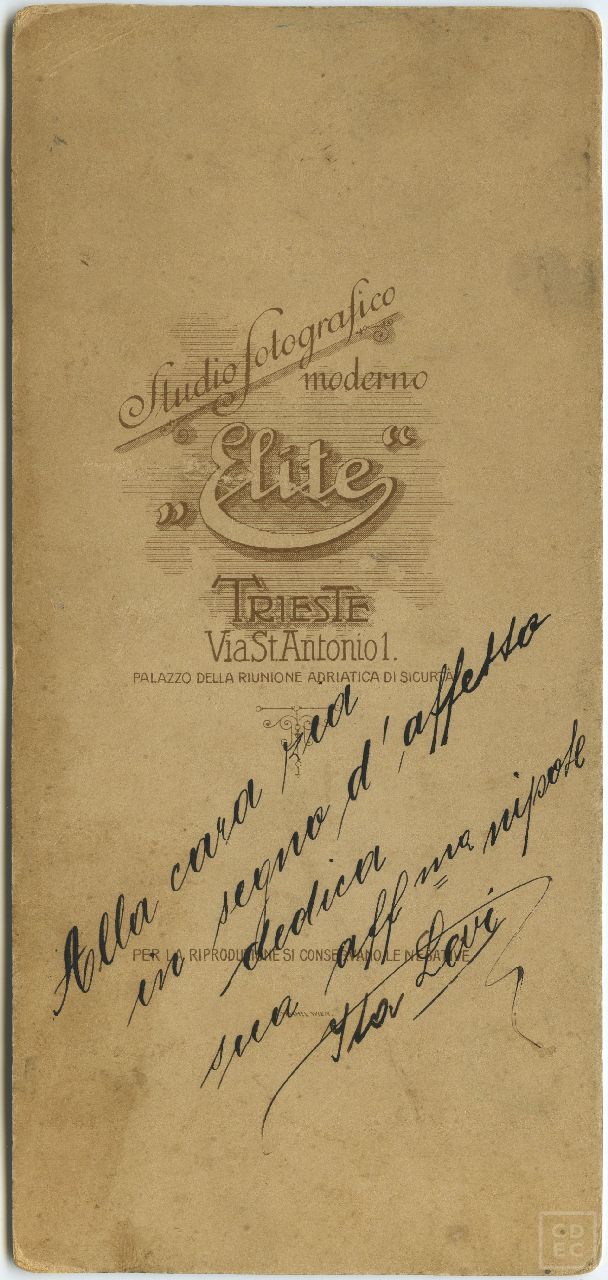 Studio fotografico
moderno
„Elite“
TRIESTE
Via St. Antonio 1.
PALAZZO DELLA RIUNIONE ADRIATICA DI SICURTÀ
Alla cara zia
in segno d'affetto
dedica
sua aff ma nipote
Levi
PER LA RIPRODUZIONE SI CONSERVANO LE NEGATIVE
WIEN.
CD
EC